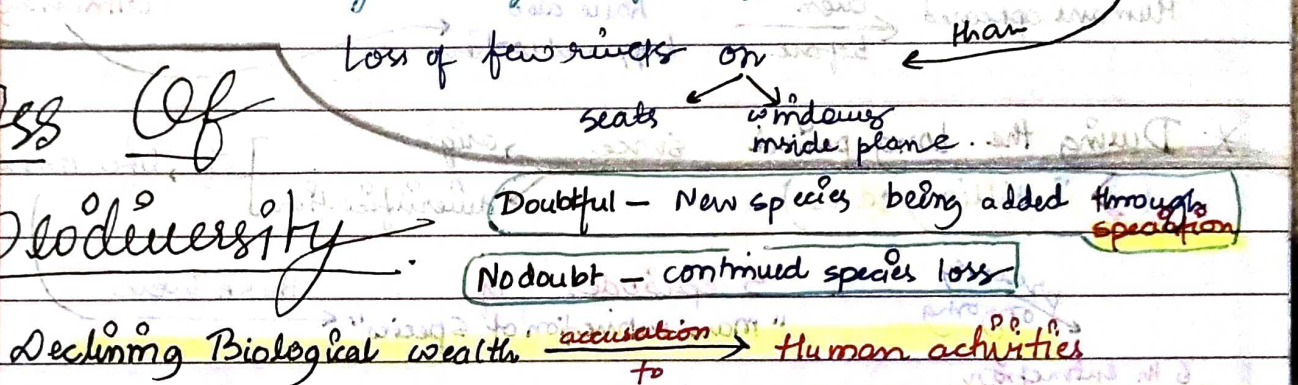 than
Loss of few rivets on
seats windows
inside plane.
ss Of
Biodiversity
Doubtful – New species being added through
speciation
No doubt – continued species loss
Declining Biological wealth accusation to Human activities